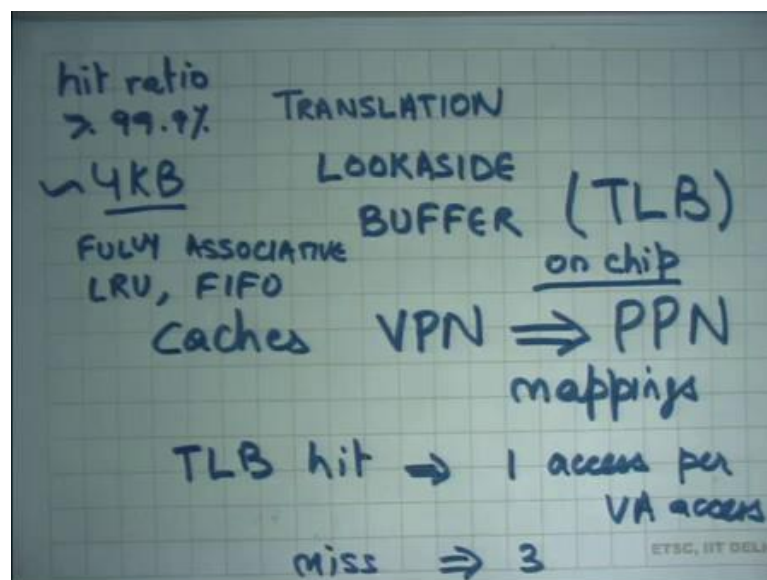 hit ratio
> 99.9%
~ 4KB
FULLY ASSOCIATIVE
LRU, FIFO
TRANSLATION
LOOKASIDE
BUFFER (TLB)
on chip
Caches VPN ⇒ PPN
mappings
TLB hit → 1 access per
VA access
miss ⇒ 3
ETSC, IIT DEL